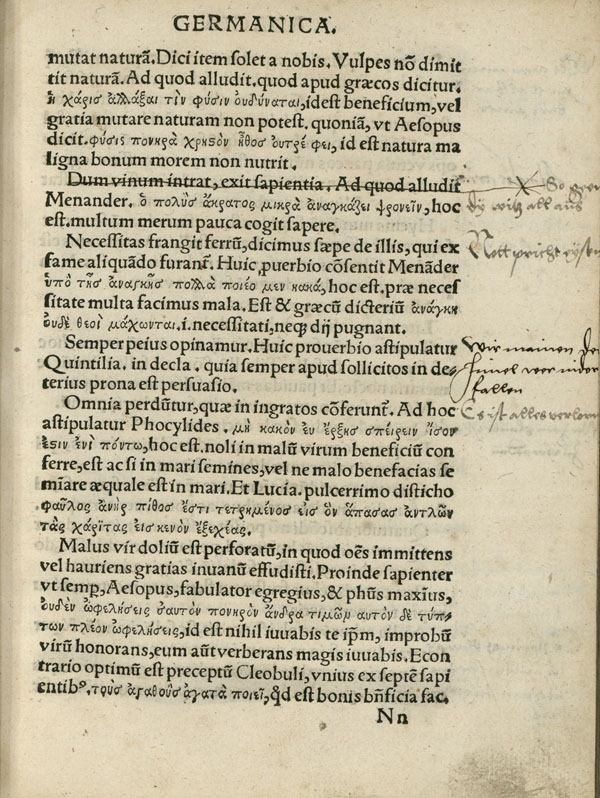 GERMANICA.
mutat naturã. Dici item ſolet a nobis. Vulpes nõ dimit
tit naturã. Ad quod alludit, quod apud græcos dicitur.
ἡ χάρισ ἀλλάξαι τὴν φύσιν ουδύναται, idest beneficium, vel
gratia mutare naturam non potest. quoniã, vt Aesopus
dicit. φύσις πονηρὰ χρηϛὸν ἦθοσ ουτρέφει, id est natura ma
ligna bonum morem non nutrit.
Dum vinum intrat, exit ſapientia. Ad quod alludit
Menander. ὁ πολὺσ ἄκρατος μικρὰ ἀναγκάζει φρονεῖν, hoc
est. multum merum pauca cogit ſapere.
Neceſſitas frangit ferrũ, dicimus ſæpe de illis, qui ex
fame aliquãdo furant᷑. Huic ꝓuerbio cõſentit Menãder
ὑπὸ τῆσ ἀναγκῆσ πολλὰ ποιέο μεν κακά, hoc est. præ neceſ
ſitate multa facimus mala. Est & græcũ dicteriũ ἀνάγκῃ
ουδὲ θεοὶ μάχωνται. i. neceſſitati, neqꝫ dij pugnant.
Semper peius opinamur. Huic prouerbio aſtipulatur
Quintilia. in decla. quia ſemper apud ſollicitos in de⸗
terius prona est perſuaſio.
Omnia perdũtur, quæ in ingratos cõferunt᷑. Ad hoc
aſtipulatur Phocylides. μὴ κακὸν ἐυ ἔρξησ σπέιρειν ἴσον
ἐϛιν ἐνὶ πόντω, hoc est. noli in malũ virum beneficiũ con
ferre, est ac ſi in mari ſemines, vel ne malo benefacias ſe
mĩare æquale est in mari. Et Lucia. pulcerrimo disticho
φαῦλος ἀνὴρ πίθοσ ἐστι τετρημένοσ εισ ὃν ἅπασασ ἀντλῶν
τὰς χάριτας εισ κενὸν ἐξεχέας.
Malus vir doliũ est perforatũ, in quod oẽs immittens
vel hauriens gratias inuanũ effudisti. Proinde ſapienter
vt ſemꝑ, Aeſopus, fabulator egregius, & phũs maxĩus,
ουδὲν ὠφελήσεις σαυτὸν πονηρὸν ἄνδρα τιμῶν αυτὸν δὲ τύπ⸗
των πλέον ὠφελήσεις, id est nihil iuuabis te ip̃m, improbũ
virũ honorans, eum aũt verberans magis iuuabis. Econ
trario optimũ est preceptũ Cleobuli, vnius ex septẽ sapi
entibꝰ. τοὺσ ἀγαθοὺσ ἀγατὰ ποιεῖ, qđ est bonis bñficia fac.
Nn
So
witz all aus
Nott pricht eysen
Wir mainen der
himel wer nider
fallen
Es ist alles verlorn